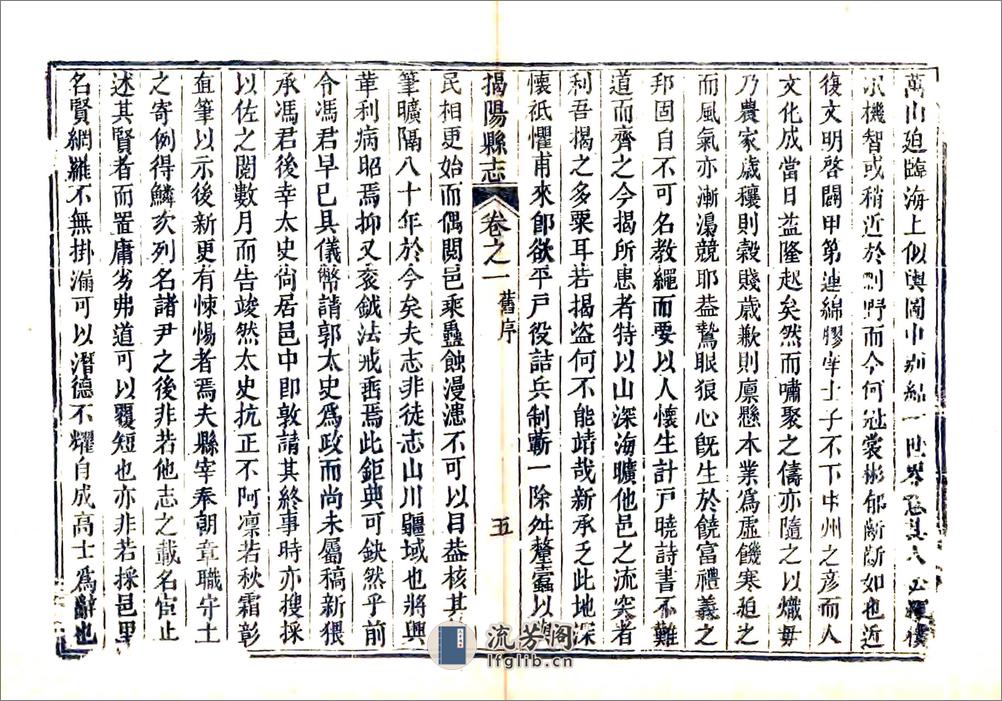 萬山迫臨海上似輿圖中別結一世界
機智或稍近於剽野而今何冠裳彬郁斷斷如也近
復文明啓闢甲第連綿膠庠士子不下中州之彥而人
文化成當日益隆起矣然而嘯聚之儔亦隨之以熾毋
乃農家歲穰則穀賤歲歉則廪懸本業爲虛饑寒迫之
而風氣亦漸瀉競耶葢鷙眼狼心旣生於饒富禮義之
邦固自不可名教繩而要以人懷生計戸曉詩書不難
道而齊之今揭所患者特以山深海曠他邑之流突者
利吾揭之多粟耳若揭盜何不能靖哉新承乏此地深
懷祇懼甫來卽欲平戸役詰兵制蘄一除舛釐蠹以與
揭陽縣志
卷之一
舊序
五
民相更始而偶閱邑乘蠱蝕漫漶不可以目葢核其
筆曠隔八十年於今矣夫志非徒志山川疆域也將興
革利病昭焉抑又衮鉞法戒寓焉此鉅典可缺然乎前
令馮君早已具儀幣請郭太史爲政而尚未屬稿新猥
承馮君後幸太史尚居邑中卽敦請其終事時亦搜採
以佐之閱數月而告竣然太史抗正不阿凛若秋霜彰
直筆以示後新更有悚惕者焉夫縣宰奉朝章職守土
之寄例得鱗次列名諸尹之後非若他志之載名宦止
述其賢者而置庸劣弗道可以覆短也亦非若採邑里
名賢網羅不無掛漏可以潛德不耀自成高士爲辭也
流芳閣
lfglib.cn